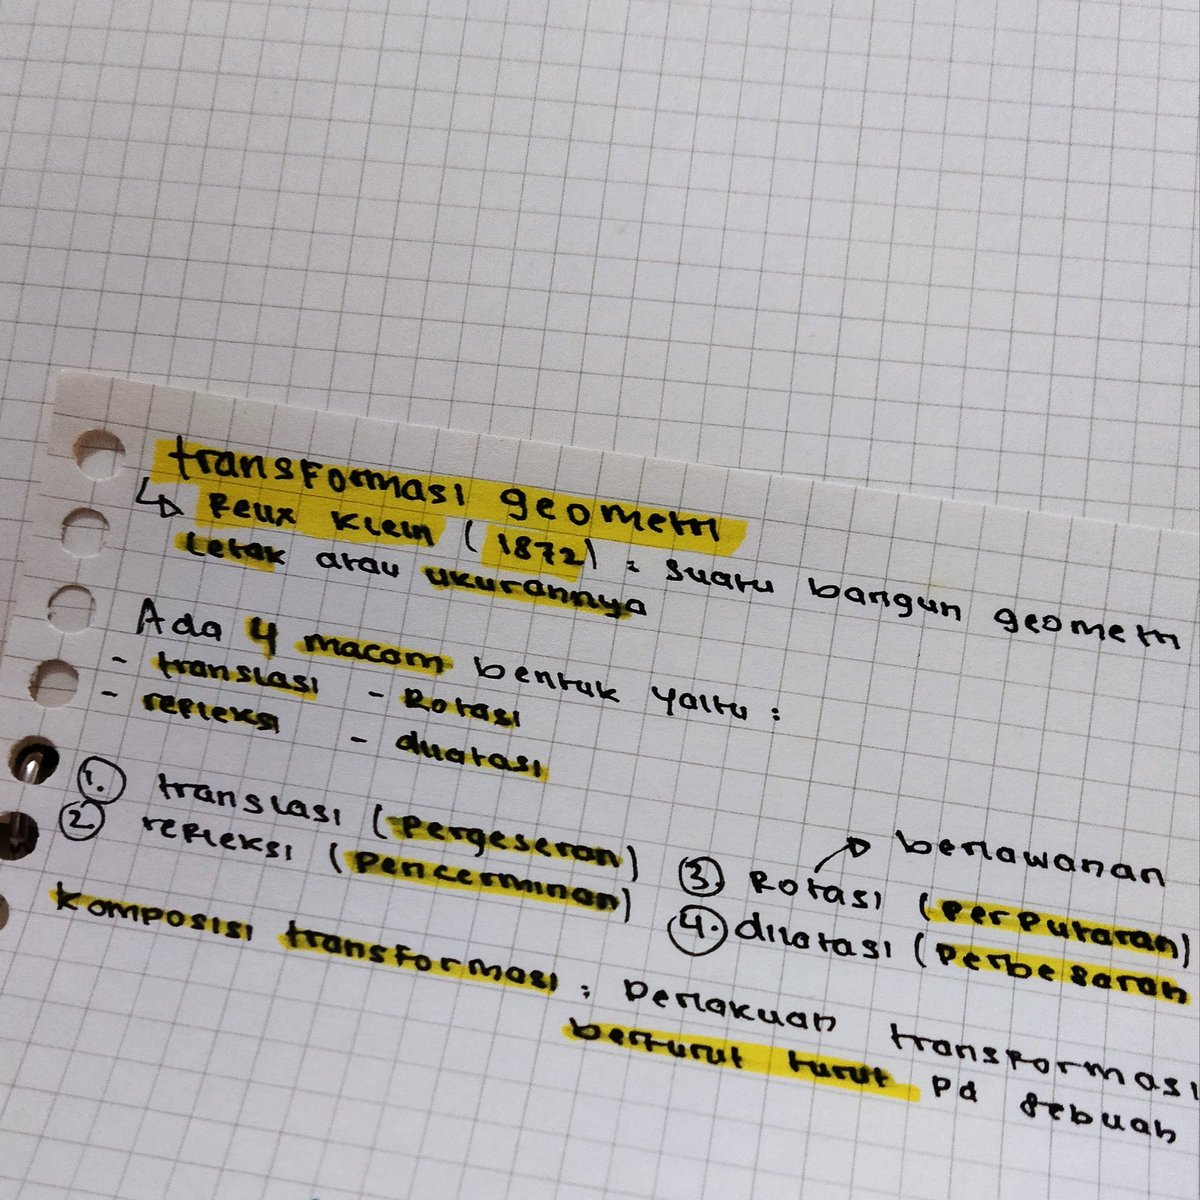 transformasi geometri
↳ Felix Klein (1872) : suatu bangun geometri
letak atau ukurannya
Ada 4 macam bentuk yaitu :
- translasi - Rotasi
- refleksi - dilatasi
1. translasi (pergeseran)
2. refleksi (pencerminan)
berlawanan
3. Rotasi (perputaran)
4. dilatasi (perbesaran
komposisi transformasi : Perlakuan transformasi
berturut turut pd sebuah